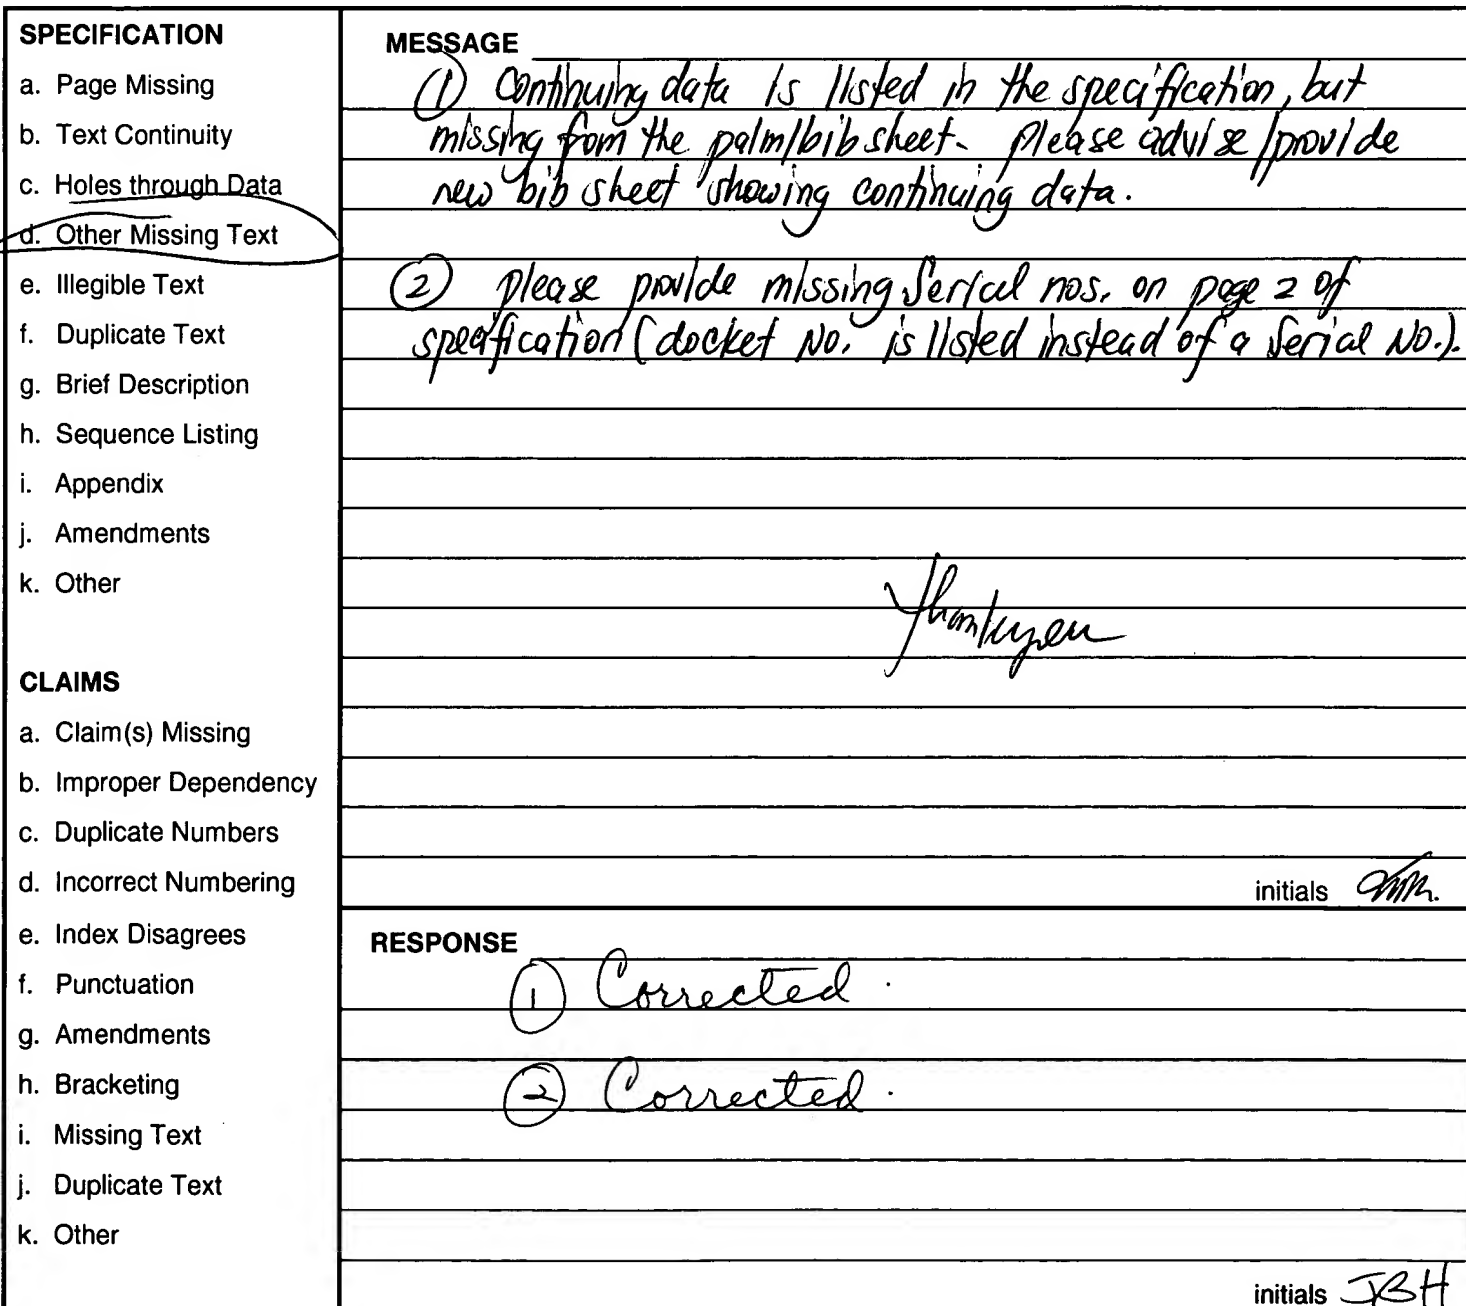 SPECIFICATION
a. Page Missing
b. Text Continuity
c. Holes through Data
d. Other Missing Text
e. Illegible Text
f. Duplicate Text
g. Brief Description
h. Sequence Listing
i. Appendix
j. Amendments
k. Other
CLAIMS
a. Claim(s) Missing
b. Improper Dependency
c. Duplicate Numbers
d. Incorrect Numbering
e. Index Disagrees
f. Punctuation
g. Amendments
h. Bracketing
i. Missing Text
j. Duplicate Text
k. Other
MESSAGE
(1) Continuing data is listed in the specification, but
missing from the palm/bib sheet. Please advise/provide
new bib sheet showing continuing data.
(2) Please provide missing Serial nos. on page 2 of
specification (docket No. is listed instead of a Serial No.).
Thank you
initials
RESPONSE
(1) Corrected.
(2) Corrected.
initials JBH